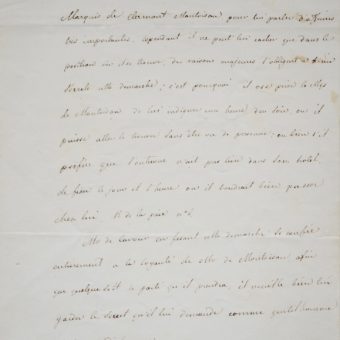 Marquis de Clermont Montoison pour lui parler d'affaires
très importantes, cependant il ne peut lui cacher que dans la
position où il se trouve, des raisons majeures l'obligent à tenir
secrete cette demarche; c'est pourquoi il ose prier le Mis
de Montoison de lui indiquer une heure du soir où il
puisse aller le trouver sans être vu de personne; ou bien s'il
préfère que l'entrevue n'ait pas lieu dans son hotel,
de fixer le jour et l'heure où il voudrait bien passer
chez lui R. de la paix n°
Mr de en faisant cette demarche se confie
entierement a la loyauté de Mr de Montoison afin
que quelque soit le parti qu'il prendra, il veuille bien lui
garder le secret qu'il lui demande comme gentilhomme